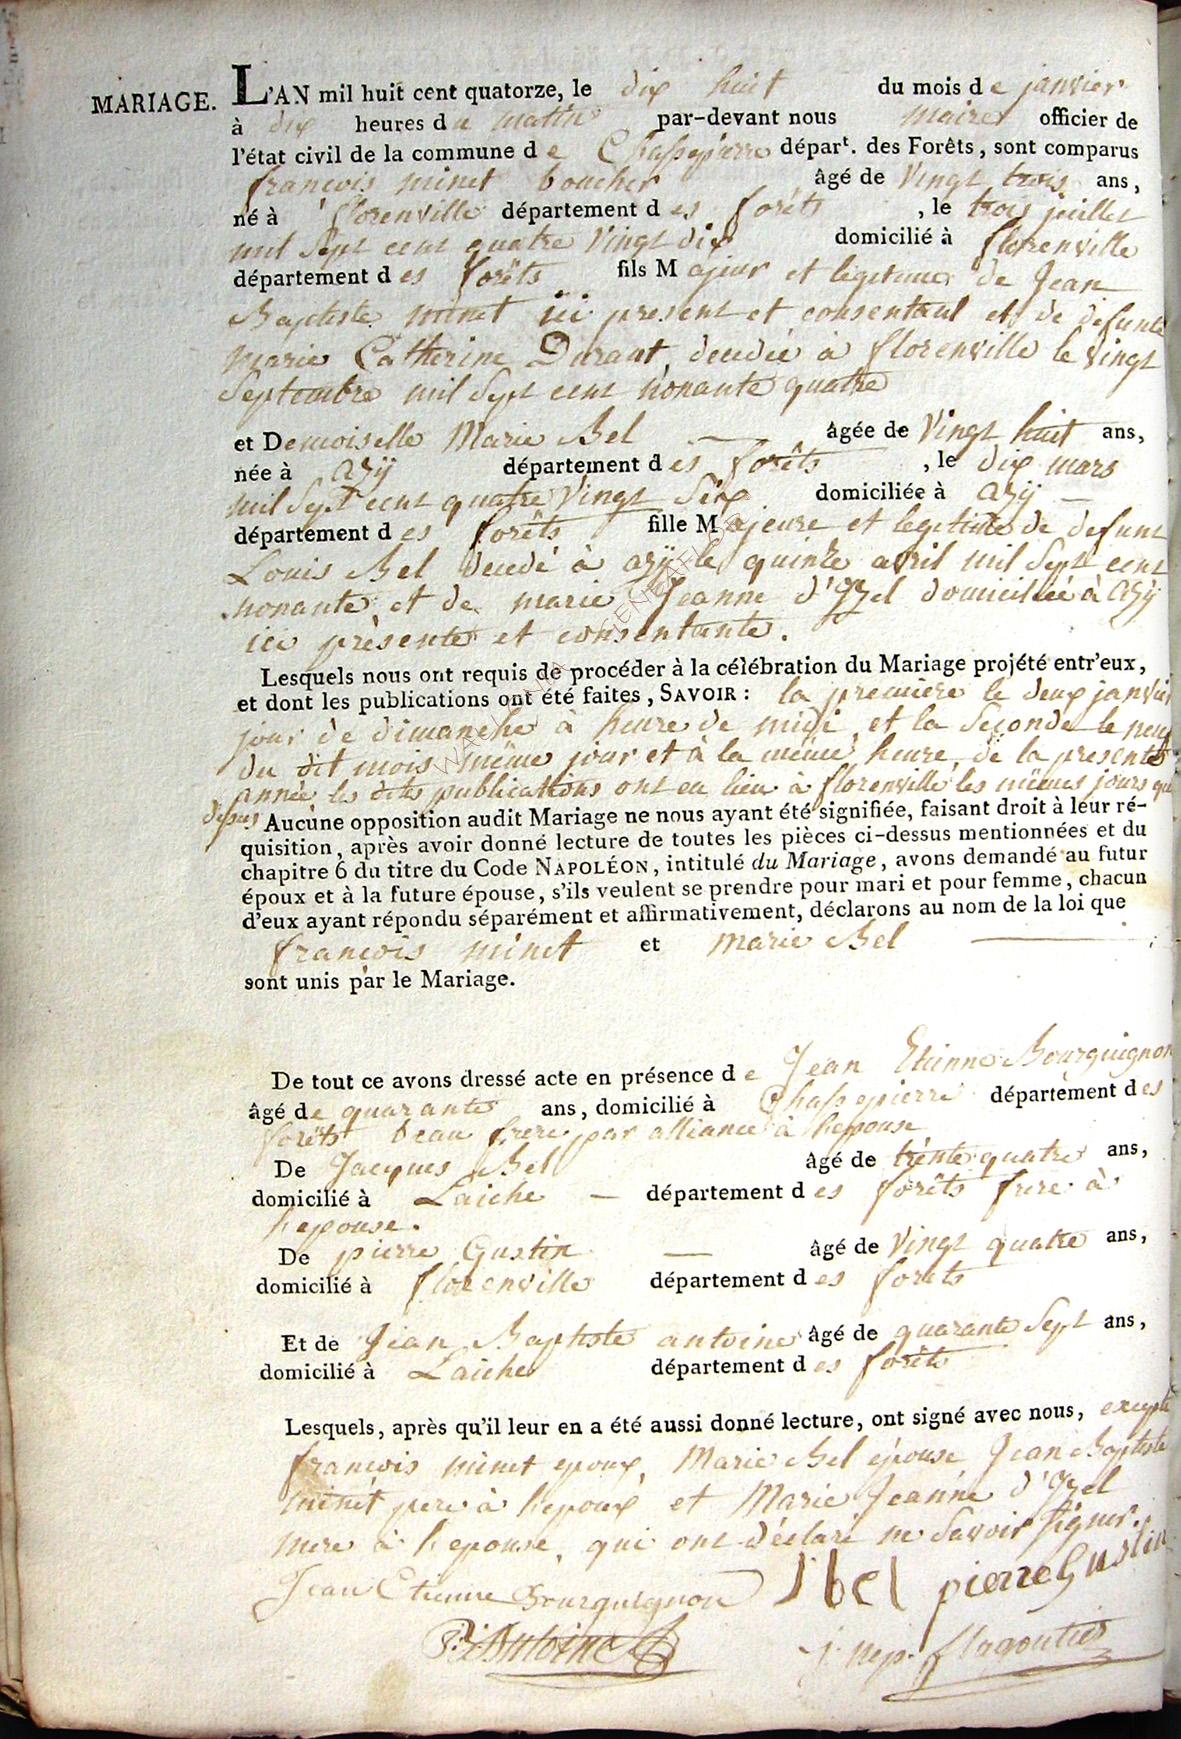 MARIAGE. L'AN mil huit cent quatorze, le dix huit du mois de janvier
à dix heures du matin par-devant nous maire officier de
l'état civil de la commune de Chassepierre départ. des Forêts, sont comparus
francois minet boucher âgé de Vingt trois ans,
né à florenville département des forêts, le trois juillet
mil Sept cent quatre Vingt dix domicilié à florenville
département des forêts fils Majeur et legitime de Jean
Baptiste minet ici present et consentant et de defunte
marie Catherine Durant decedée à florenville le vingt
Septembre mil Sept cent nonante quatre
et Demoiselle Marie Bel — âgée de Vingt huit ans,
née à azÿ département des forêts, le dix mars
mil Sept cent quatre Vingt Six domiciliée à azÿ —
département des forêts fille Majeure et legitime de defunt
Louis Bel decedé à azÿ le quinze avril mil Sept cent
nonante et de marie Jeanne d'Izel domiciliée à azÿ
ici présente et consentante.
Lesquels nous ont requis de procéder à la célébration du Mariage projété entr'eux,
et dont les publications ont été faites, SAVOIR : la première le deux janvier
jour de dimanche à heure de midi et la Seconde le neuf
du dit mois même jour et à la même heure, de la presente
année les dites publications ont eu lieu à florenville les mêmes jours que
depus Aucune opposition audit Mariage ne nous ayant été signifiée, faisant droit à leur ré-
quisition, après avoir donné lecture de toutes les pièces ci-dessus mentionnées et du
chapitre 6 du titre du Code NAPOLÉON, intitulé du Mariage, avons demandé au futur
époux et à la future épouse, s'ils veulent se prendre pour mari et pour femme, chacun
d'eux ayant répondu séparément et affirmativement, déclarons au nom de la loi que
francois minet et marie Bel — ;
sont unis par le Mariage.
De tout ce avons dressé acte en présence de Jean Etienne Bourguignon
âgé de quarante ans, domicilié à Chassepierre département des
forêts beau frere par alliance à l'epouse
De Jacques Bel âgé de trente quatre ans,
domicilié à Laiche — département des forêts frere à
l'epouse.
De pierre Gustin — âgé de Vingt quatre ans,
domicilié à florenville département des forets
Et de Jean Baptiste antoine âgé de quarante Sept ans,
domicilié à Laiche département des forêts
Lesquels, après qu'il leur en a été aussi donné lecture, ont signé avec nous, excepté
francois minet epoux, Marie Bel épouse Jean Baptiste
minet pere à l'epoux et Marie Jeanne d'Izel
mere à l'epouse, qui ont déclaré ne Savoir Signer.
Jean Etienne Bourguignon J bel pierre Gustin
Antoine J: nep. flagontier